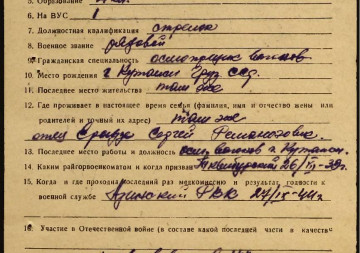 5. Образование
6. На ВУС 1
7. Должностная квалификация стрелок
8. Военное звание рядовой
9. Гражданская специальность осмотрщик вагонов
10. Место рождения г. Кутаиси Груз ССР
11. Последнее место жительства там же
12. Где проживает в настоящее время семья (фамилия, имя и отчество жены или
родителей и точный их адрес) там же
отец Сергей
13. Последнее место работы и должность осм. вагонов г. Кутаиси
14. Каким райгорвоенкоматом и когда призван 26/III-39г.
15. Когда и где проходил последний раз медкомиссию и результат годности к
военной службе РВК 27/IX-44г.
16. Участие в Отечественной войне (в составе какой последней части в качестве